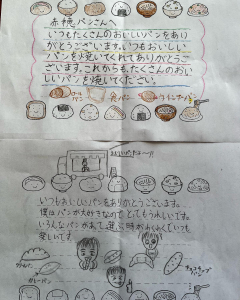 赤穂パンさんへ
いつもたくさんのおいしいパンをあり
がとうございます。いつもおいしい
パンを焼いてくれてありがとうござ
います。これからも、たくさんのおい
しいパンを焼いてください。
食パン
いつもおいしいパンをありがとうございます。
僕はパンが大好きなので とてもうれしいです。
いろんなパンがあって、選ぶ時がわくわくしていつも
楽しいです。
カレーパン